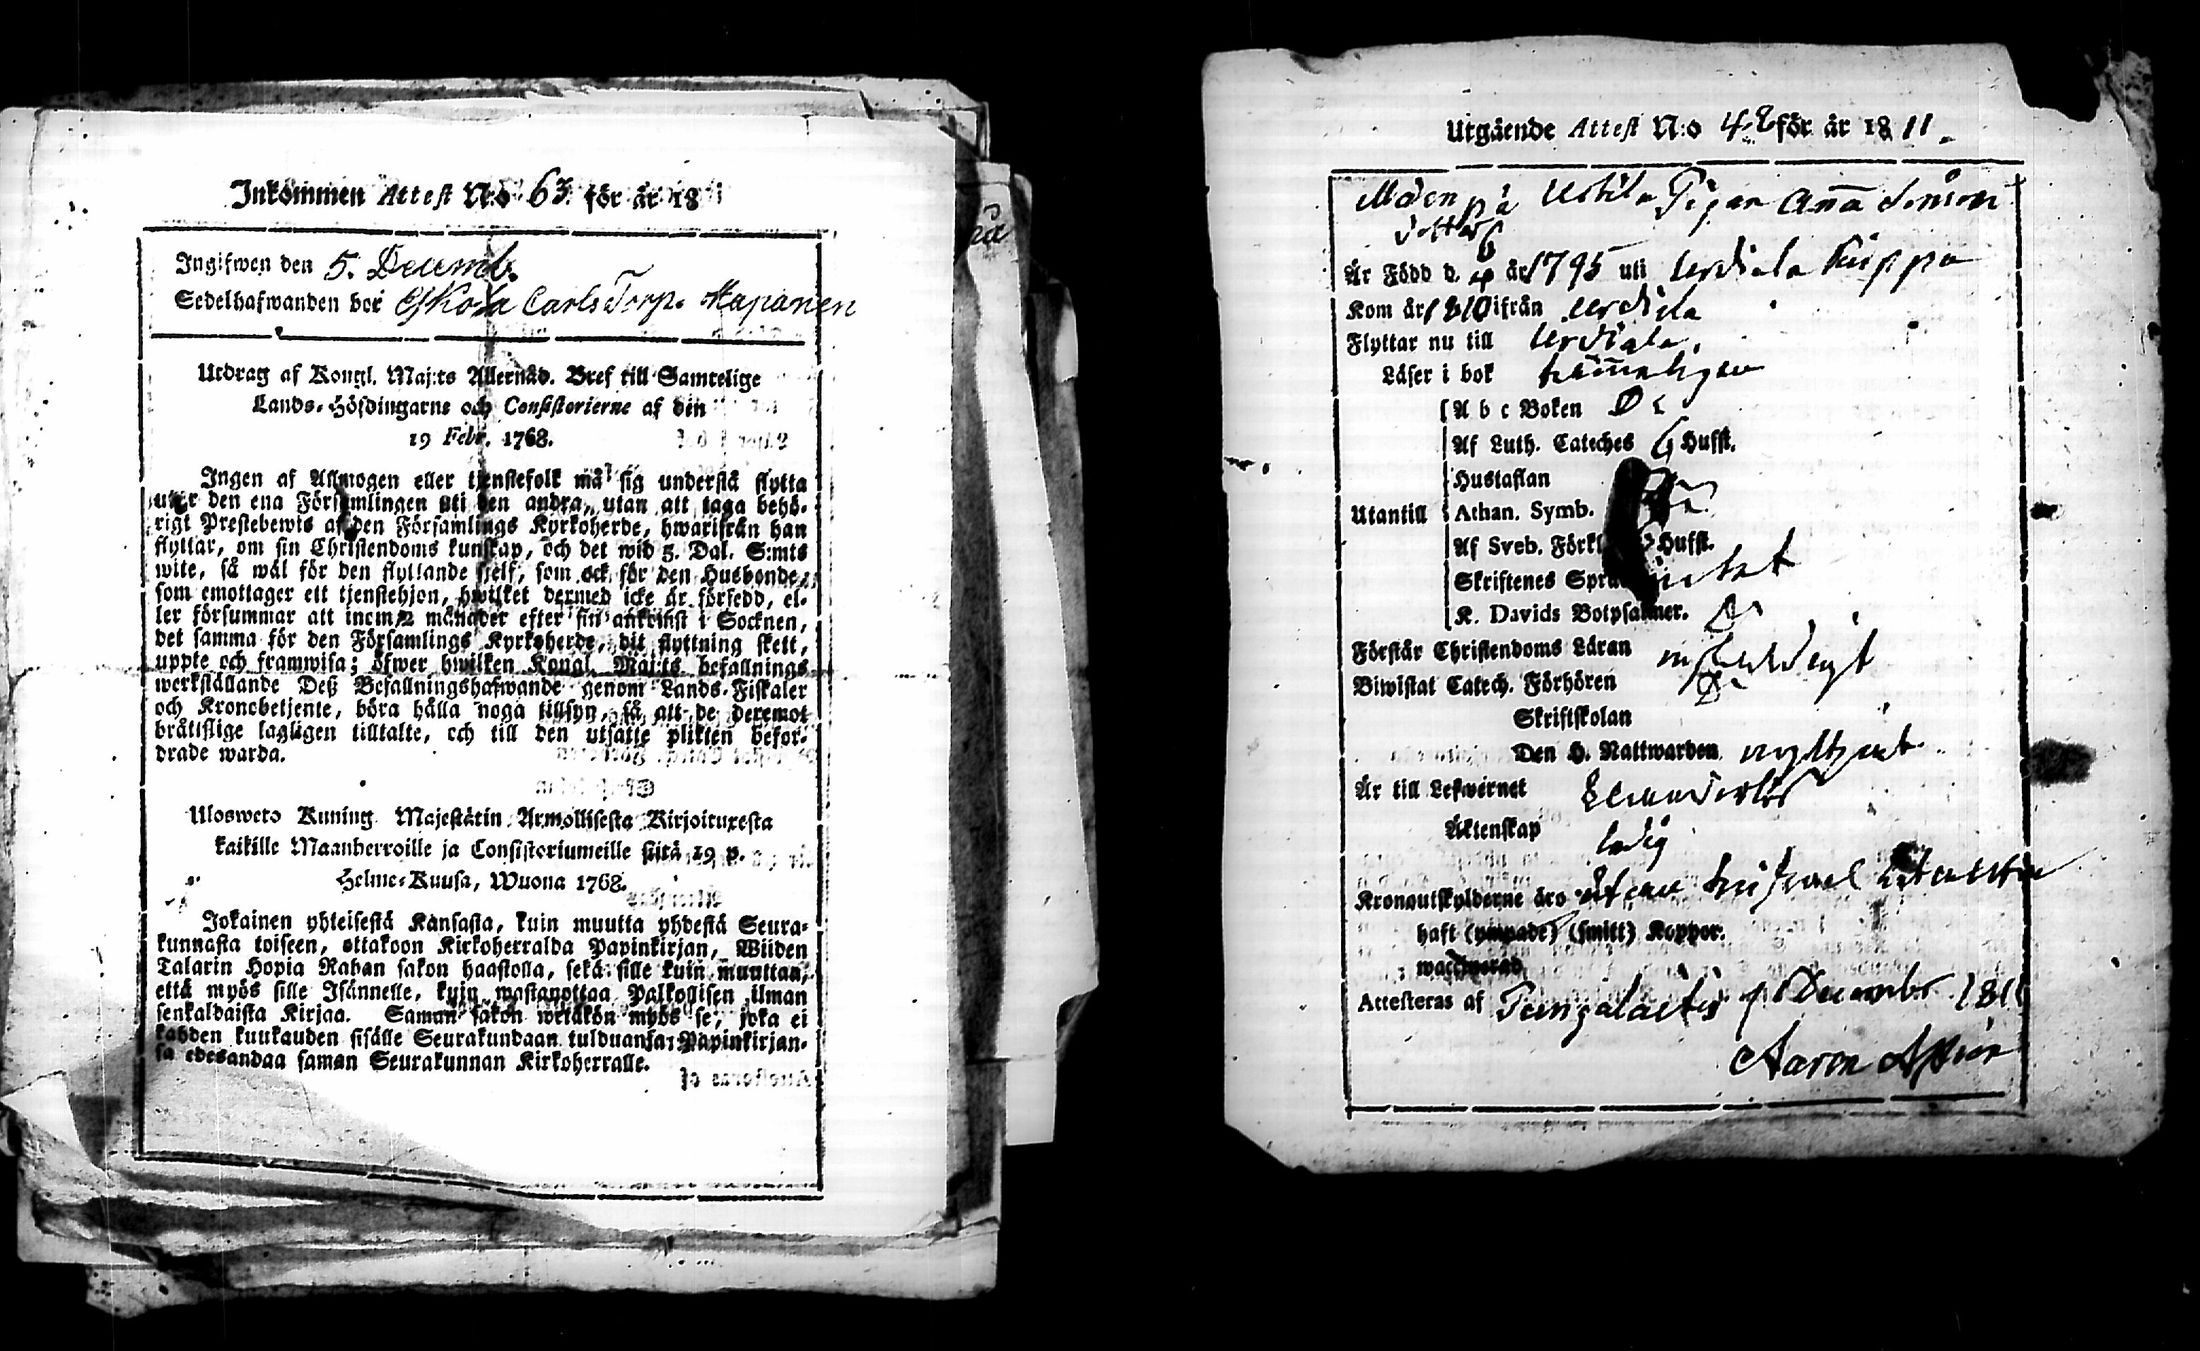 Inkommen Attest N:o 63 för år 18
Ingifwen den 5. Decemb.
Sedelhafwanden bor Carls Torp.
Utdrag af Kongl. Maj:ts Allernåd. Bref till Samtelige
Lands-Höfdingarne och Consistorierne af den
19 Febr. 1768.
Ingen af Allmogen eller tjenstefolk må sig understå flytta
utur den ena Församlingen uti den andra, utan att taga behö-
rigt Prestebewis af den Församlings Kyrkoherde, hwarifrån han
flyttar, om sin Christendoms kunskap, och det wid 5. Dal. S:mts
wite, så wäl för den flyttande sjelf, som ock för den Husbonde,
som emottager ett tjenstehjon, hwilket dermed icke är försedd, el-
ler försummar att inom 2 månader efter sin ankomst i Socknen,
det samma för den Församlings Kyrkoherde, dit flyttning skett,
uppte och framwisa; öfwer hwilken Kongl. Maj:ts befallnings
werkställande Deß Befallningshafwande genom Lands-Fiskaler
och Kronobetjente, böra hålla noga tillsyn, så att de deremot
bråttslige lagligen tilltalte, och till den utsatte plikten befor-
drade warda.
Ulosweto Kuning Majestätin Armollisesta Kirjoituxesta
kaikille Maanherroille ja Consistoriumeille siitä 19 p.
Helme-Kuusa, Wuona 1768.
Jokainen yhteisestä Kansasta, kuin muutta yhdestä Seura-
kunnasta toiseen, ottakoon Kirkoherralda Papinkirjan, Wiiden
Talarin Hopia Rahan sakon haastolla, sekä sille kuin muuttaa,
että myös sille Isännelle, kuin wastanottaa Palkollisen ilman
senkaldaista Kirjaa. Saman sakon wetäkön myös se, joka ei
kahden kuukauden sisälle Seurakundaan tulduansa Papinkirjan-
sa edesandaa saman Seurakunnan Kirkoherralle.
Utgående Attest N:o 42 för år 1811.
på Pigan Anna Simons
dotter
Är Född d. år 1795 uti Urdiala
Kom år 1810 ifrån Urdiala
Flyttar nu till Urdiala.
Läser i bok
A b c Boken
Af Luth. Cateches 6 Hufst.
Hustaflan
Utantill Athan. Symb.
Af Sveb. Förkl. Hufst.
Skriftenes Språk
K. Davids Botpsalmer.
Förstår Christendoms Läran
Biwistat Catech. Förhören
Skriftskolan
Den H. Nattwarden nyttjat
Är till Lefwernet
Äktenskap ledig
Kronoutskylderne äro
haft (ympade) (smitt) Koppor.
waccinerad
Attesteras af Decembr 1811
Aaron